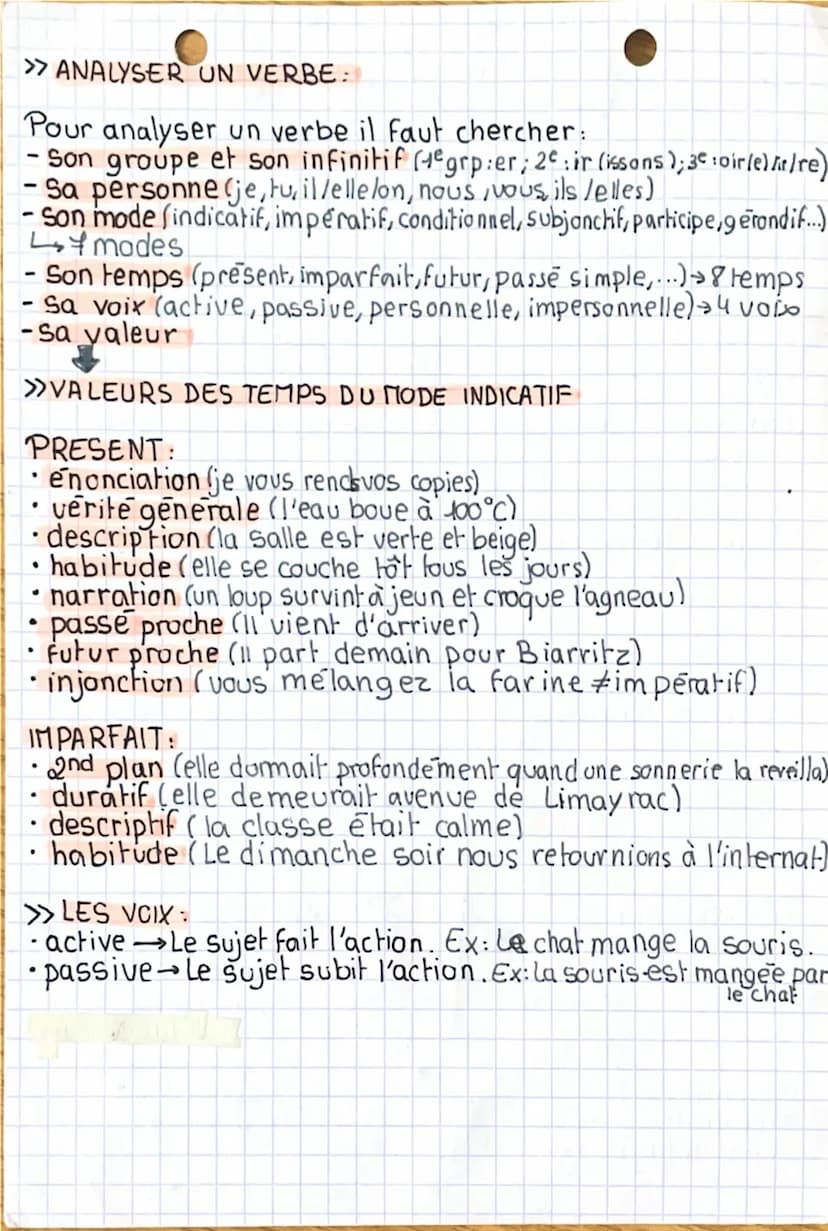 >> ANALYSER UN VERBE:
Pour analyser un verbe il faut chercher:
- Son groupe et son infinitif (1e grp:er; 2e:ir (issons); 3e:oir(e)/ir/re)
- Sa personne (je, tu, il/elle/on, nous, vous, ils/elles)
- Son mode (indicatif, impératif, conditionnel, subjonctif, participe, gérondif...)
↳ 7 modes
- Son temps (présent, imparfait, futur, passé simple,...)→8 temps
- Sa voix (active, passive, personnelle, impersonnelle)→4 voix
- sa valeur
>> VALEURS DES TEMPS DU MODE INDICATIF
PRESENT:
· énonciation (je vous rends vos copies)
· vérité générale (l'eau boue à 100°C)
· description (la salle est verte et beige)
· habitude (elle se couche tôt tous les jours)
· narration (un loup survint à jeun et croque l'agneau)
· passé proche (Il vient d'arriver)
· futur proche (Il part demain pour Biarritz)
· injonction (vous mélangez la farine ≠ impératif)
IMPARFAIT:
· 2nd plan (elle dormait profondément quand une sonnerie la reveilla)
· duratif (elle demeurait avenue de Limayrac)
· descriptif (la classe était calme)
· habitude (Le dimanche soir nous retournions à l'internat)
>> LES VOIX:
· active → Le sujet fait l'action. Ex: Le chat mange la souris.
· passive → Le sujet subit l'action. Ex: la souris est mangée par
le chat